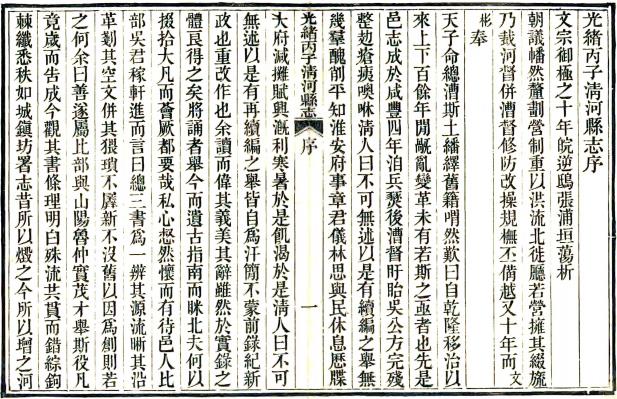 光緒丙子清河縣志序
文宗御極之十年皖逆鴟張浦垣蕩析
朝議幡然釐劃營制重以洪流北徙廳若營擁其綴旒
乃裁河督併漕督修防改操規橅丕偝越又十年而文
彬奉
天子命總漕斯土繙繹舊籍喟然歎曰自乾隆移治以
來上下百餘年閒亂變革未有若斯之亟者也先是
邑志成於咸豐四年洎兵燹後漕督盱眙吳公方完殘
整刼瘡痍噢咻淸人曰不可無述以是有續編之舉無
幾羣醜削平知淮安府事章君儀林思與民休息歷牒
光緒丙子清河縣志 序 一
大府減攤賦興漑利寒暑於是飢渴於是淸人曰不可
無述以是有再續編之舉皆自為汗簡不蒙前錄紀新
政也重改作也余讀而偉其義美其辭雖然於實錄之
體良得之矣將誦者舉今而遺古指南而眯北夫何以
掇拾大凡而薈厥都要哉私心惄然懷而有待邑人比
部吳君稼軒進而言曰總三書為一辨其源流晰其沿
革剗其空文併其猥瑣不羼新不沒舊以因為創則若
之何余曰善遂屬比部與山陽魯仲實茂才舉斯役凡
竟歲而告成今觀其書條理明白殊流共貫而錯綜鉤
棘纖悉秩如城鎭坊署志昔所以燬之今所以增之河